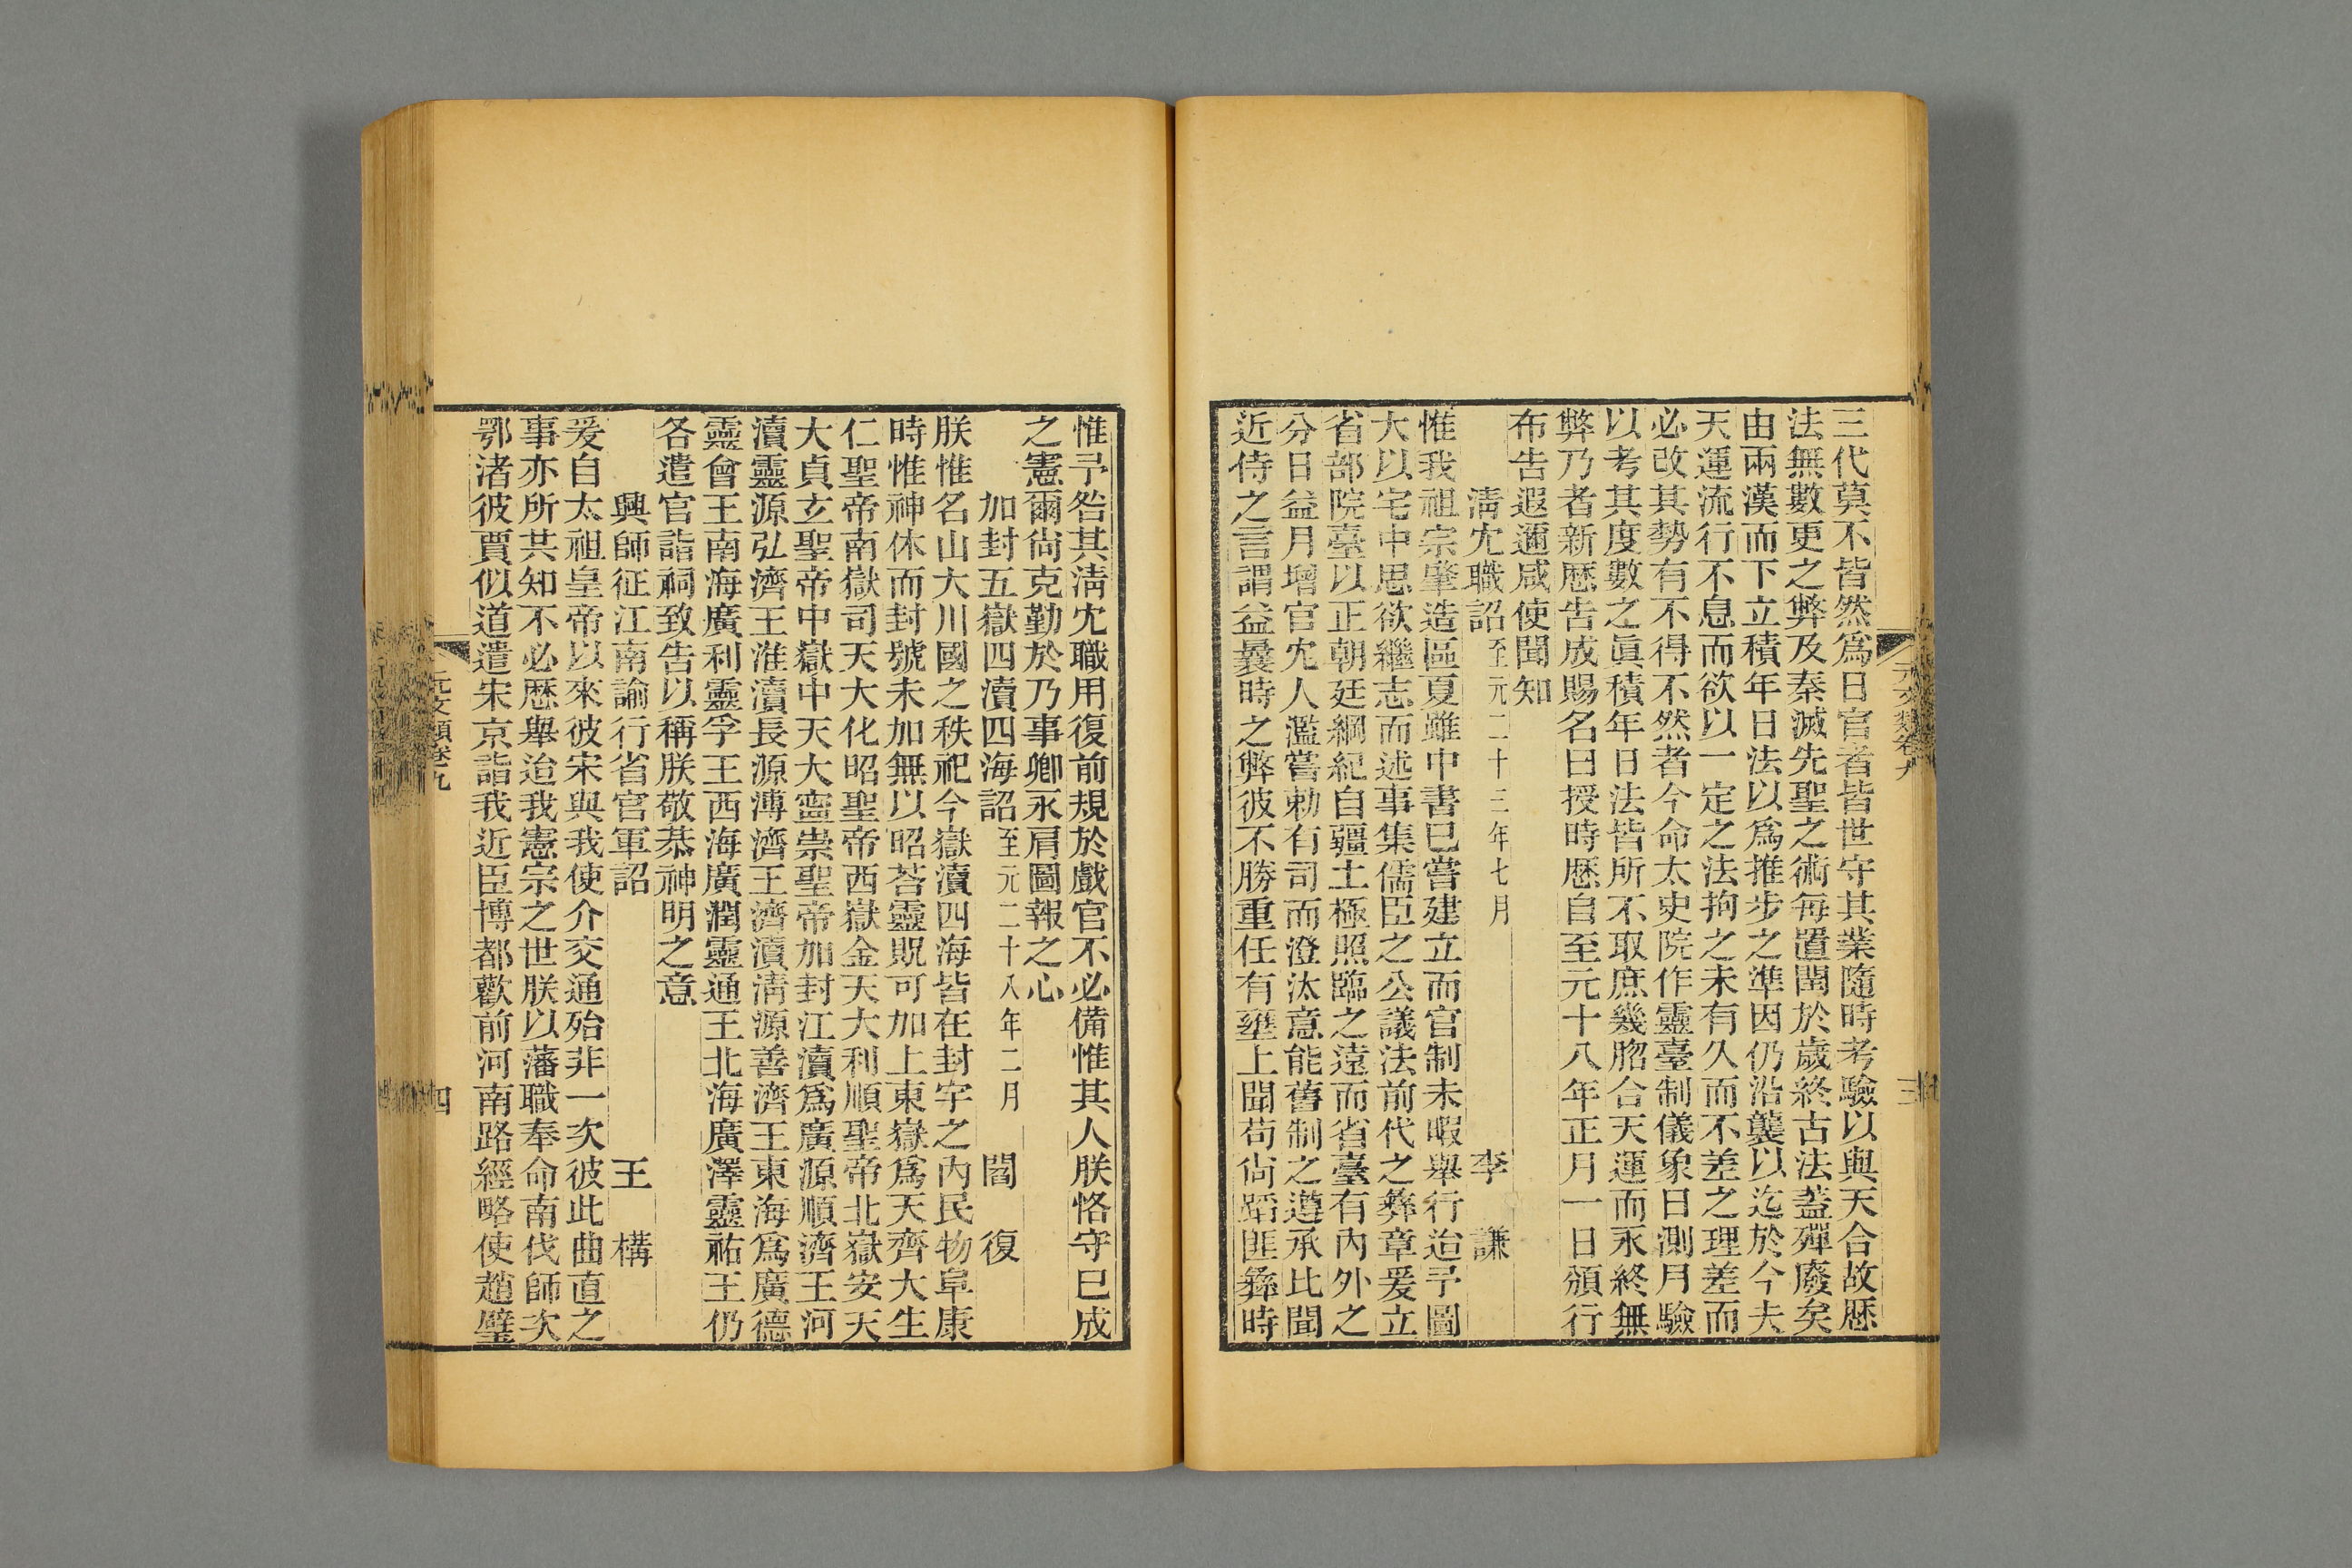 三代莫不皆然爲日官者皆世守其業隨時考驗以與天合故歷
法無數更之弊及秦滅先聖之術每置閏於歲終古法蓋殫廢矣
由兩漢而下立積年日法以爲推步之準因仍沿襲以迄於今夫
天運流行不息而欲以一定之法拘之未有久而不差之理差而
必改其勢有不得不然者今命太史院作靈臺制儀象日測月驗
以考其度數之眞積年日法皆所不取庶幾脗合天運而永終無
弊乃者新歷告成賜名曰授時歷自至元十八年正月一日頒行
布告遐邇咸使聞知
清冘職詔至元二十三年七月 李謙
惟我祖宗肇造區夏雖中書已嘗建立而官制未暇舉行迨予圖
大以宅中思欲繼志而述事集儒臣之公議法前代之彝章爰立
省部院臺以正朝廷綱紀自疆土極照臨之遠而省臺有內外之
分日益月增官冘人濫嘗勅有司而澄汰意能舊制之遵承比聞
近侍之言謂益曩時之弊彼不勝重任有壅上聞苟尙蹈匪彝時
元文類卷九
三
惟予咎其清冘職用復前規於戲官不必備惟其人朕恪守已成
之憲爾尙克勤於乃事卿永肩圖報之心
加封五嶽四瀆四海詔至元二十八年二月 閻復
朕惟名山大川國之秩祀今嶽瀆四海皆在封宇之內民物阜康
時惟神休而封號未加無以昭荅靈貺可加上東嶽爲天齊大生
仁聖帝南嶽司天大化昭聖帝西嶽金天大利順聖帝北嶽安天
大貞玄聖帝中嶽中天大寧崇聖帝加封江瀆爲廣源順濟王河
瀆靈源弘濟王淮瀆長源溥濟王濟瀆清源善濟王東海爲廣德
靈會王南海廣利靈孚王西海廣潤靈通王北海廣澤靈祐王仍
各遣官詣祠致告以稱朕敬恭神明之意
興師征江南諭行省官軍詔 王構
爰自太祖皇帝以來彼宋與我使介交通殆非一次彼此曲直之
事亦所共知不必歷舉迨我憲宗之世朕以藩職奉命南伐師次
鄂渚彼賈似道遣宋京詣我近臣博都歡前河南路經略使趙璧
元文類卷九
四